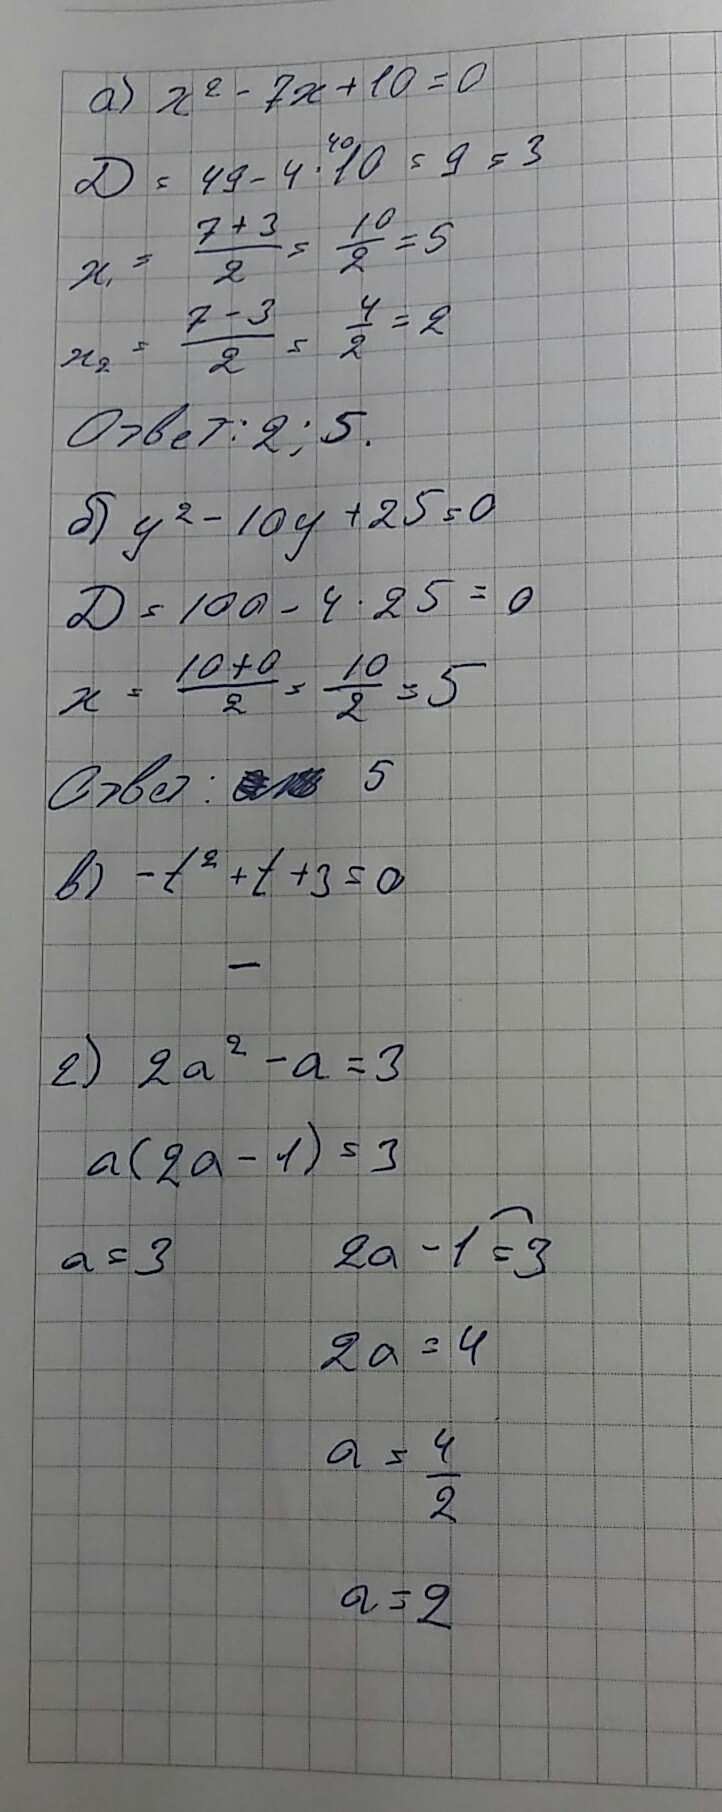 а) x² - 7x + 10 = 0
D = 49 - 4 · 10 = 9 = 3
40
x₁ = 7+3/2 = 10/2 = 5
x₂ = 7-3/2 = 4/2 = 2
Ответ: 2; 5.
б) y² - 10y + 25 = 0
D = 100 - 4 · 25 = 0
x = 10+0/2 = 10/2 = 5
Ответ: 5
в) -t² + t + 3 = 0
–
г) 2a² - a = 3
a(2a - 1) = 3
a = 3 2a - 1 = 3
2a = 4
a = 4/2
a = 2